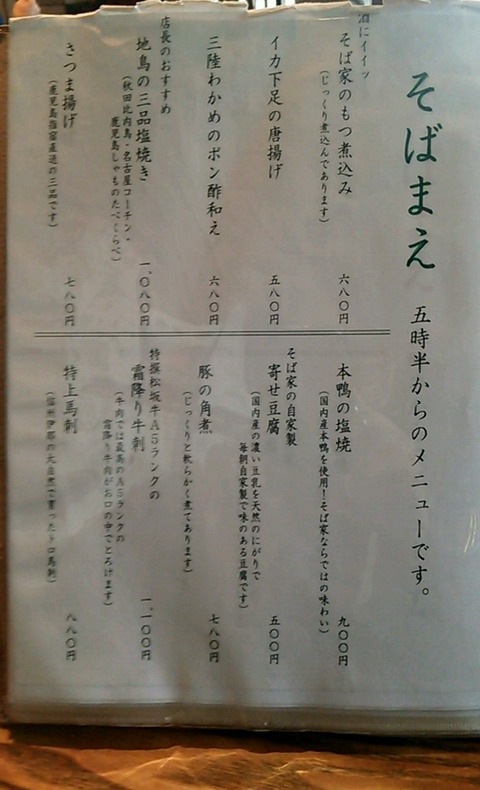 そばまえ 五時半からのメニューです。
酒にイイッ
そば家のもつ煮込み 六八〇円
(じっくり煮込んであります)
イカ下足の唐揚げ 五八〇円
三陸わかめのポン酢和え 六八〇円
店長のおすすめ
地鳥の三品塩焼き 一、〇八〇円
(秋田比内鳥・名古屋コーチン・
鹿児島しゃものたべくらべ)
さつま揚げ 七八〇円
(鹿児島指宿直送の三品です)
本鴨の塩焼 九〇〇円
(国内産本鴨を使用!そば家ならではの味わい)
そば家の自家製
寄せ豆腐 五〇〇円
(国内産の濃い豆乳を天然のにがりで
毎朝自家製で味のある豆腐です)
豚の角煮 七八〇円
(じっくりと軟らかく煮てあります)
特撰松坂牛A5ランクの
霜降り牛刺 一、一〇〇円
(牛肉では最高のA5ランクの
霜降り牛肉がお口の中でとろけます)
特上馬刺 八八〇円
(信州伊那の大自然で育ったトロ馬刺)